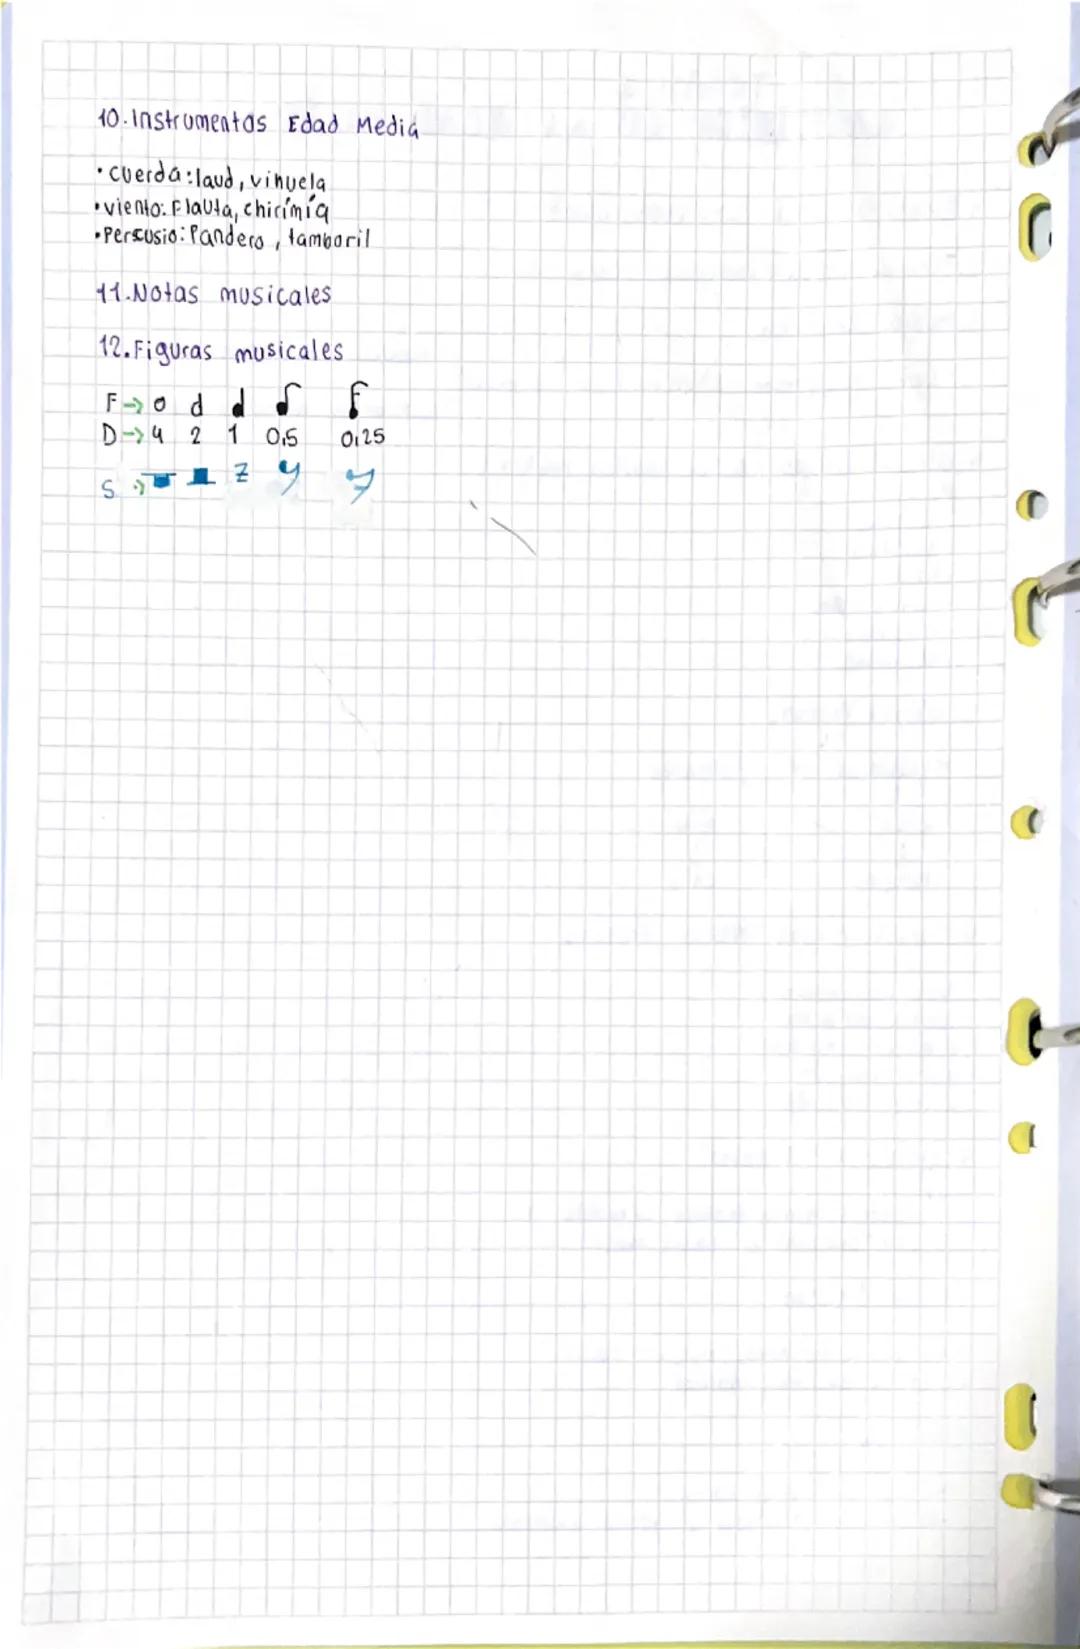 10. Instrumentos Edad Media
• cuerda: laud, vihuela
• viento: Flauta, chirimía
• Percusio: Pandero, tamboril
11. Notas musicales
12. Figuras musicales
F → o d 𝅘𝅥 𝅘𝅥𝅮 𝅘𝅥𝅯
D → 4 2 1 0,5 0,25
S → 𝄻 𝄼 z y 𝄿